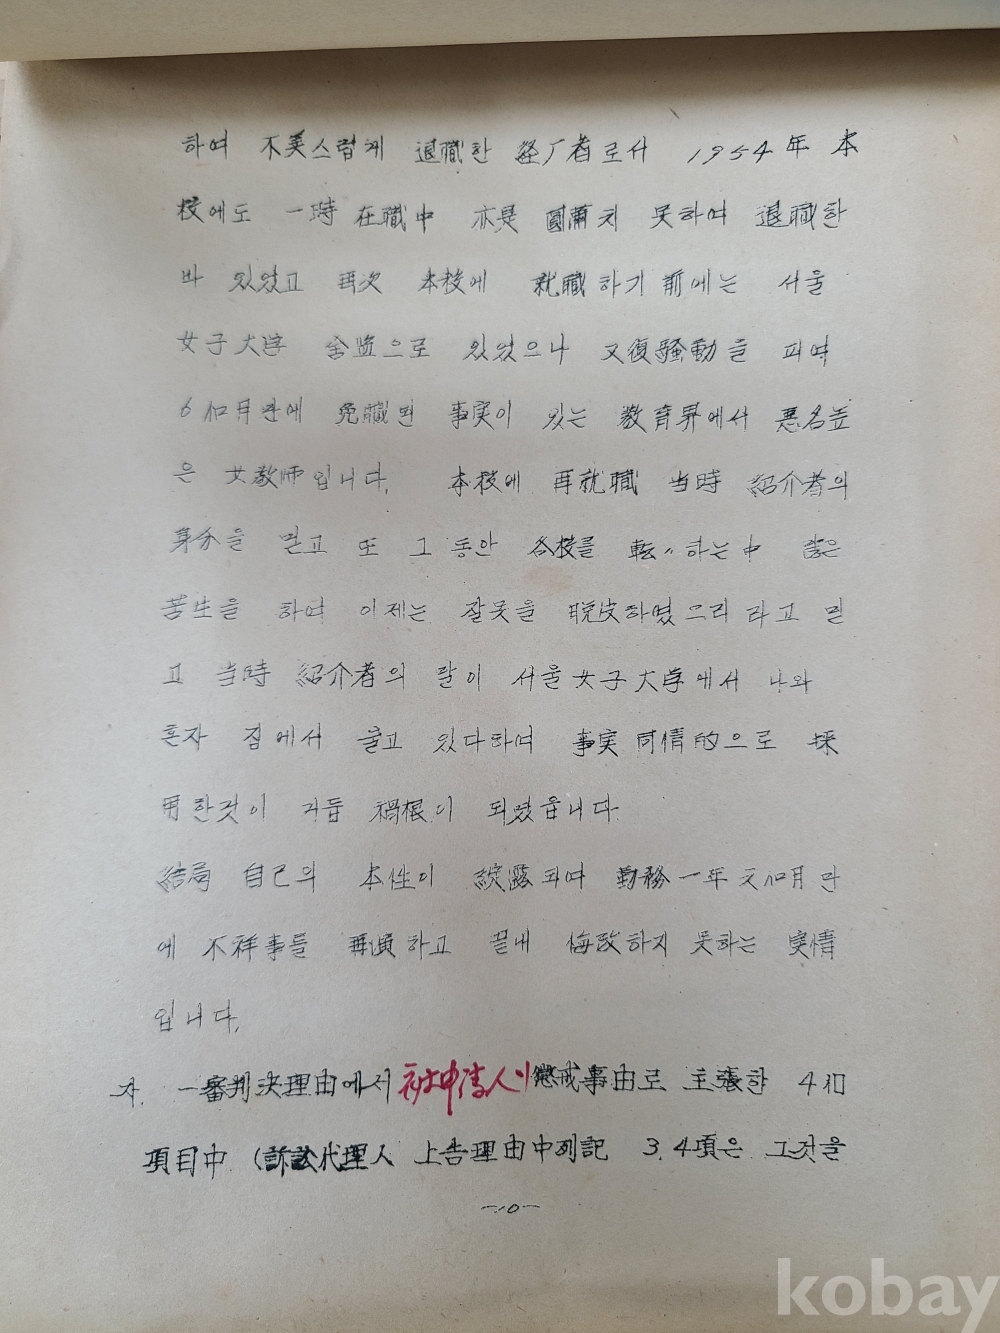 하여 不美스럽게 退職한 経厂者로서 1954年 本
校에도 一時 在職中 亦是 圓滿치 못하여 退職한
바 있었고 再次 本校에 就職하기 前에는 서울
女子大学 舍監으로 있었으나 又復騒動을 피여
6個月만에 免職된 事実이 있는 教育界에서 悪名높
은 女教師입니다. 本校에 再就職 当時 紹介者의
身分을 믿고 또 그동안 各校를 転〃하는中 많은
苦生을 하여 이제는 잘못을 脱皮하였으리라고 믿
고 当時 紹介者의 말이 서울女子大学에서 나와
혼자 집에서 울고 있다하여 事実 同情的으로 採
用한것이 거듭 禍根이 되였읍니다.
結局 自己의 本性이 綻露되여 勤務一年 만
에 不祥事를 再演하고 끝내 悔改하지 못하는 実情
입니다.
자. 一審判决理由에서 被申請人이 懲戒事由로 主張한 4個
項目中 (訴訟代理人 上告理由中列記 3.4項은 그것을
-10-
kobay